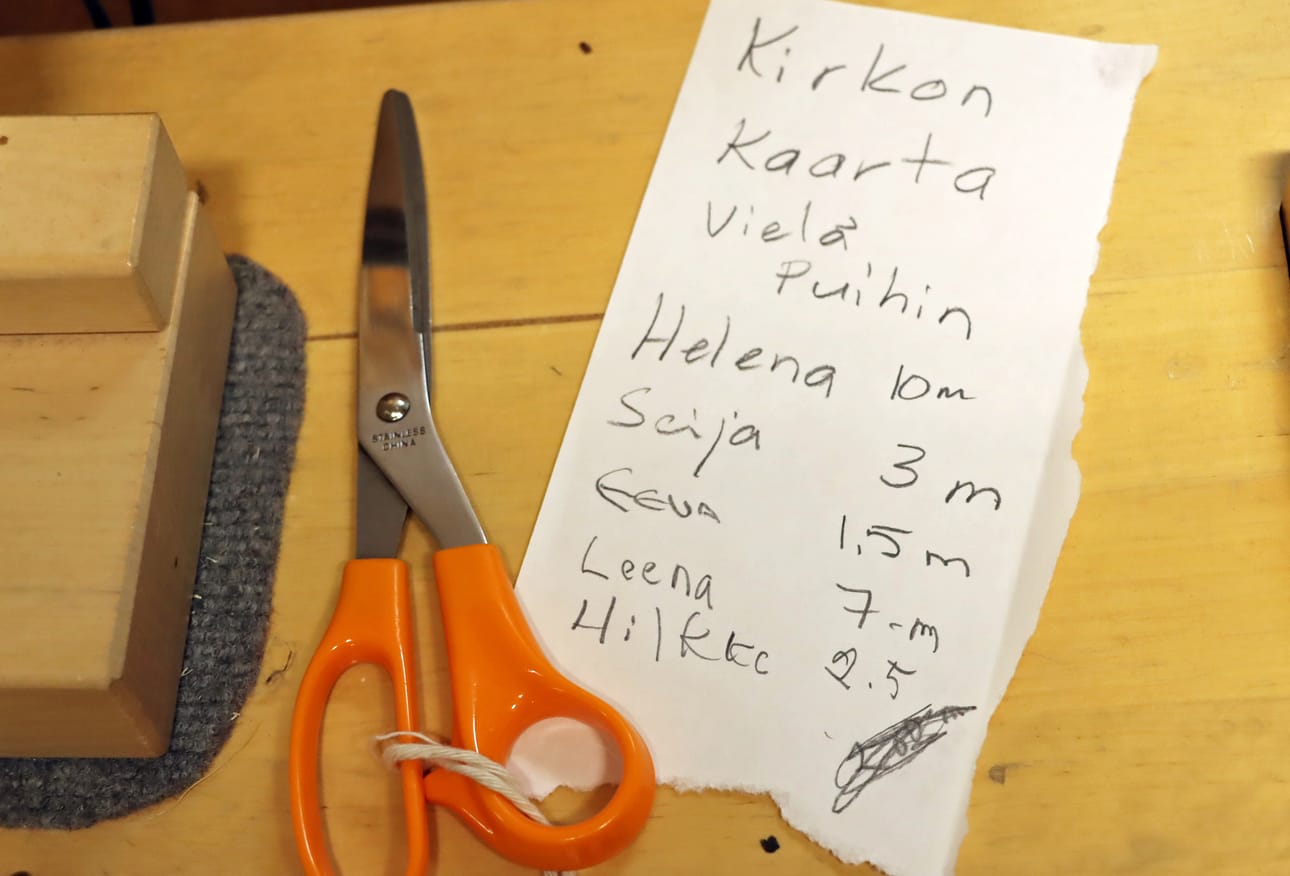 STAINLESS
CHINA
Kirkon
Kaarta
Vielä
Puihin
Helena 10m
Seija 3 m
Eeva 1.5 m
Leena 7 -m
Hilkka 2.5